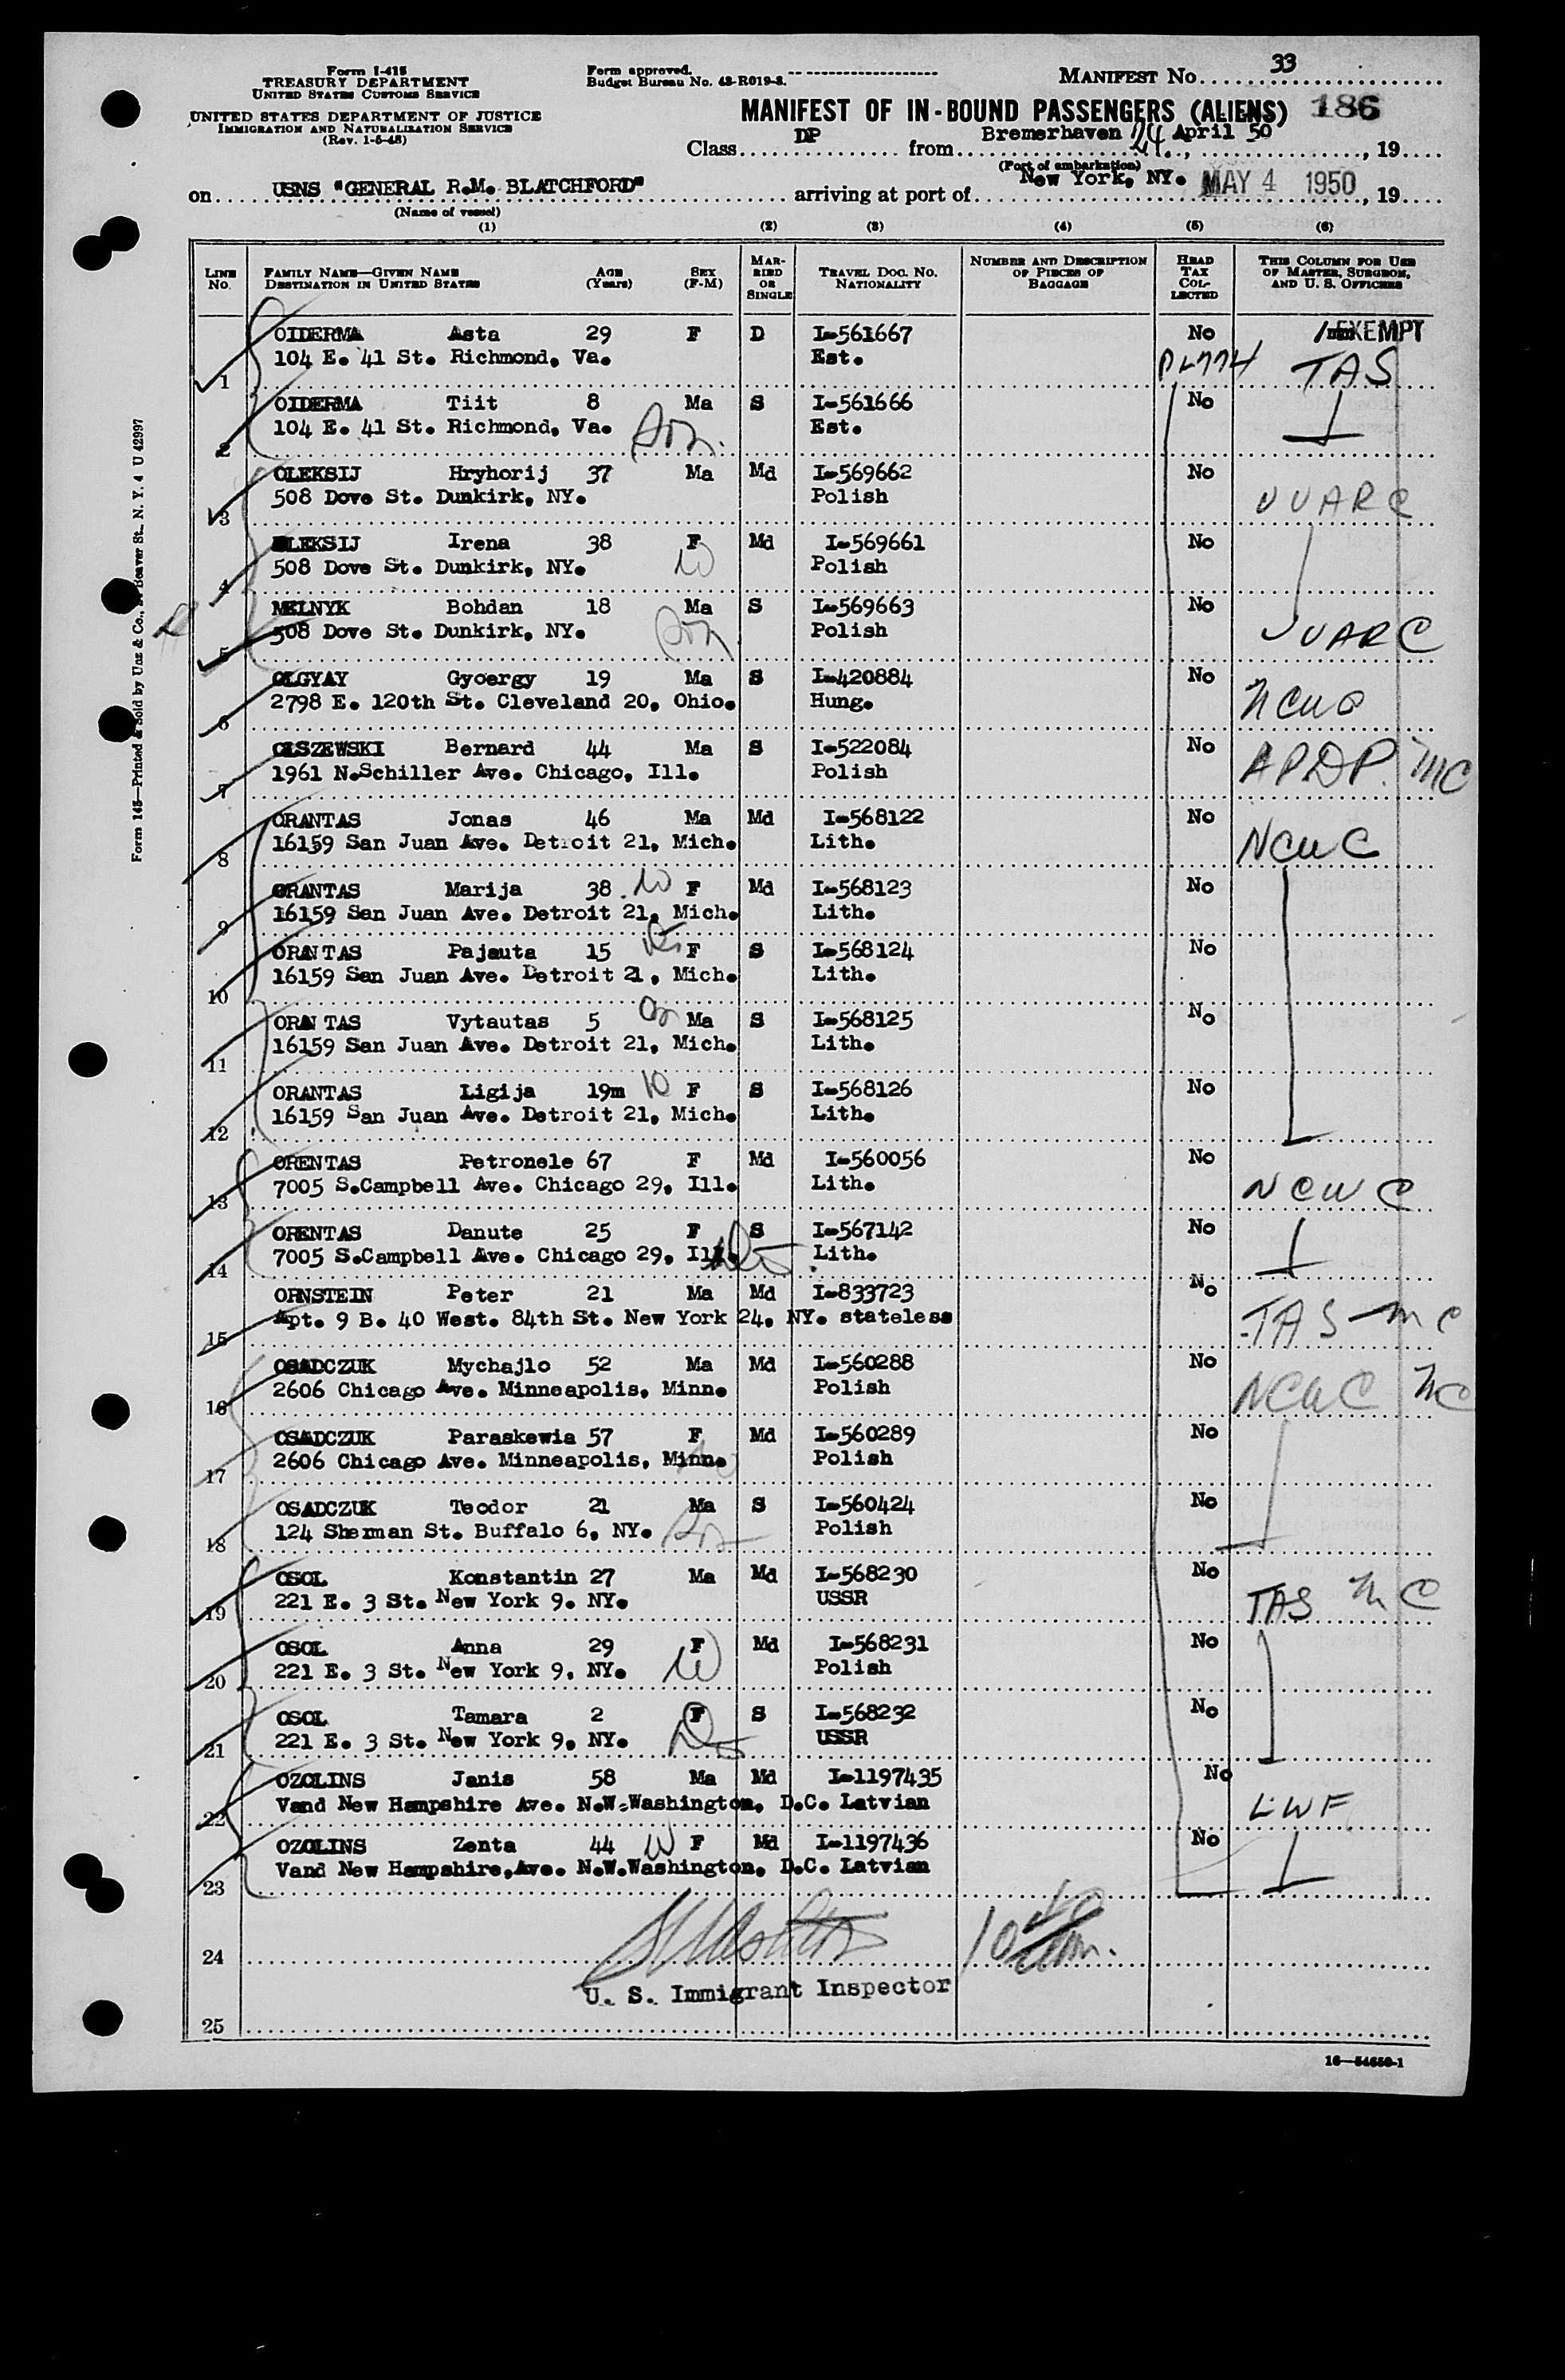 Form I-415
TREASURY DEPARTMENT
UNITED STATES CUSTOMS SERVICE
UNITED STATES DEPARTMENT OF JUSTICE
IMMIGRATION AND NATURALIZATION SERVICE
(Rev. 1-5-48)
Form approved.
Budget Bureau No. 43-R019-3.
MANIFEST NO. 33
MANIFEST OF IN-BOUND PASSENGERS (ALIENS) 186
Class DP from Bremerhaven 24 April 50, 19
(Port of embarkation)
on USNS "GENERAL R.M. BLATCHFORD" arriving at port of New York, NY. MAY 4 1950, 19
(Name of vessel)
(1) (2) (3) (4) (5) (6)
LINE NO.
FAMILY NAME—GIVEN NAME DESTINATION IN UNITED STATES
AGE (YEARS)
SEX (F-M)
MARRIED OR SINGLE
TRAVEL DOC. NO. NATIONALITY
NUMBER AND DESCRIPTION OF PIECES OF BAGGAGE
HEAD TAX COLLECTED
THIS COLUMN FOR USE OF MASTER, SURGEON, AND U. S. OFFICERS
OIDERMA Asta 29 F D I-561667 No EXEMPT
1 104 E. 41 St. Richmond, Va. Est. PL774 TAS
OIDERMA Tiit 8 Ma S I-561666 No
2 104 E. 41 St. Richmond, Va. Son. Est.
OLEKSIJ Hryhorij 37 Ma Md I-569662 No
3 508 Dove St. Dunkirk, NY. Polish UUARC
OLEKSIJ Irena 38 F Md I-569661 No
4 508 Dove St. Dunkirk, NY. W Polish
MELNYK Bohdan 18 Ma S I-569663 No
5 508 Dove St. Dunkirk, NY. Son Polish UUARC
OLGYAY Gyoergy 19 Ma S I-420884 No
6 2798 E. 120th St. Cleveland 20, Ohio. Hung. NCWC
OLSZEWSKI Bernard 44 Ma S I-522084 No
7 1961 N.Schiller Ave. Chicago, Ill. Polish APDP. MC
ORANTAS Jonas 46 Ma Md I-568122 No
8 16159 San Juan Ave. Detroit 21, Mich. Lith. NCWC
ORANTAS Marija 38 W F Md I-568123 No
9 16159 San Juan Ave. Detroit 21, Mich. Lith.
ORANTAS Pajauta 15 F S I-568124 No
10 16159 San Juan Ave. Detroit 21, Mich. Lith.
ORANTAS Vytautas 5 Ma S I-568125 No
11 16159 San Juan Ave. Detroit 21, Mich. Lith.
ORANTAS Ligija 19m F S I-568126 No
12 16159 San Juan Ave. Detroit 21, Mich. Lith.
ORENTAS Petronele 67 F Md I-560056 No
13 7005 S.Campbell Ave. Chicago 29, Ill. Lith. NCWC
ORENTAS Danute 25 F S I-567142 No
14 7005 S.Campbell Ave. Chicago 29, Ill. Lith.
ORNSTEIN Peter 21 Ma Md I-833723 No
15 Apt. 9 B. 40 West. 84th St. New York 24, NY. stateless TAS - MC
OSADCZUK Mychajlo 52 Ma Md I-560288 No
16 2606 Chicago Ave. Minneapolis, Minn. Polish NCWC MC
OSADCZUK Paraskewia 57 F Md I-560289 No
17 2606 Chicago Ave. Minneapolis, Minn. Polish
OSADCZUK Teodor 21 Ma S I-560424 No
18 124 Sherman St. Buffalo 6, NY. Son Polish
OSOL Konstantin 27 Ma Md I-568230 No
19 221 E. 3 St. New York 9. NY. USSR TAS MC
OSOL Anna 29 F Md I-568231 No
20 221 E. 3 St. New York 9, NY. W Polish
OSOL Tamara 2 F S I-568232 No
21 221 E. 3 St. New York 9, NY. USSR
OZOLINS Janis 58 Ma Md I-1197435 No
22 Vand New Hampshire Ave. N.W.Washington, D.C. Latvian LWF
OZOLINS Zenta 44 W F Md I-1197436 No
23 Vand New Hampshire,Ave. N.W.Washington, D.C. Latvian
24
U. S. Immigrant Inspector
25
16—54650-1
Form 145—Printed & Sold by Unz & Co., Beaver St., N. Y. 4 U 42997